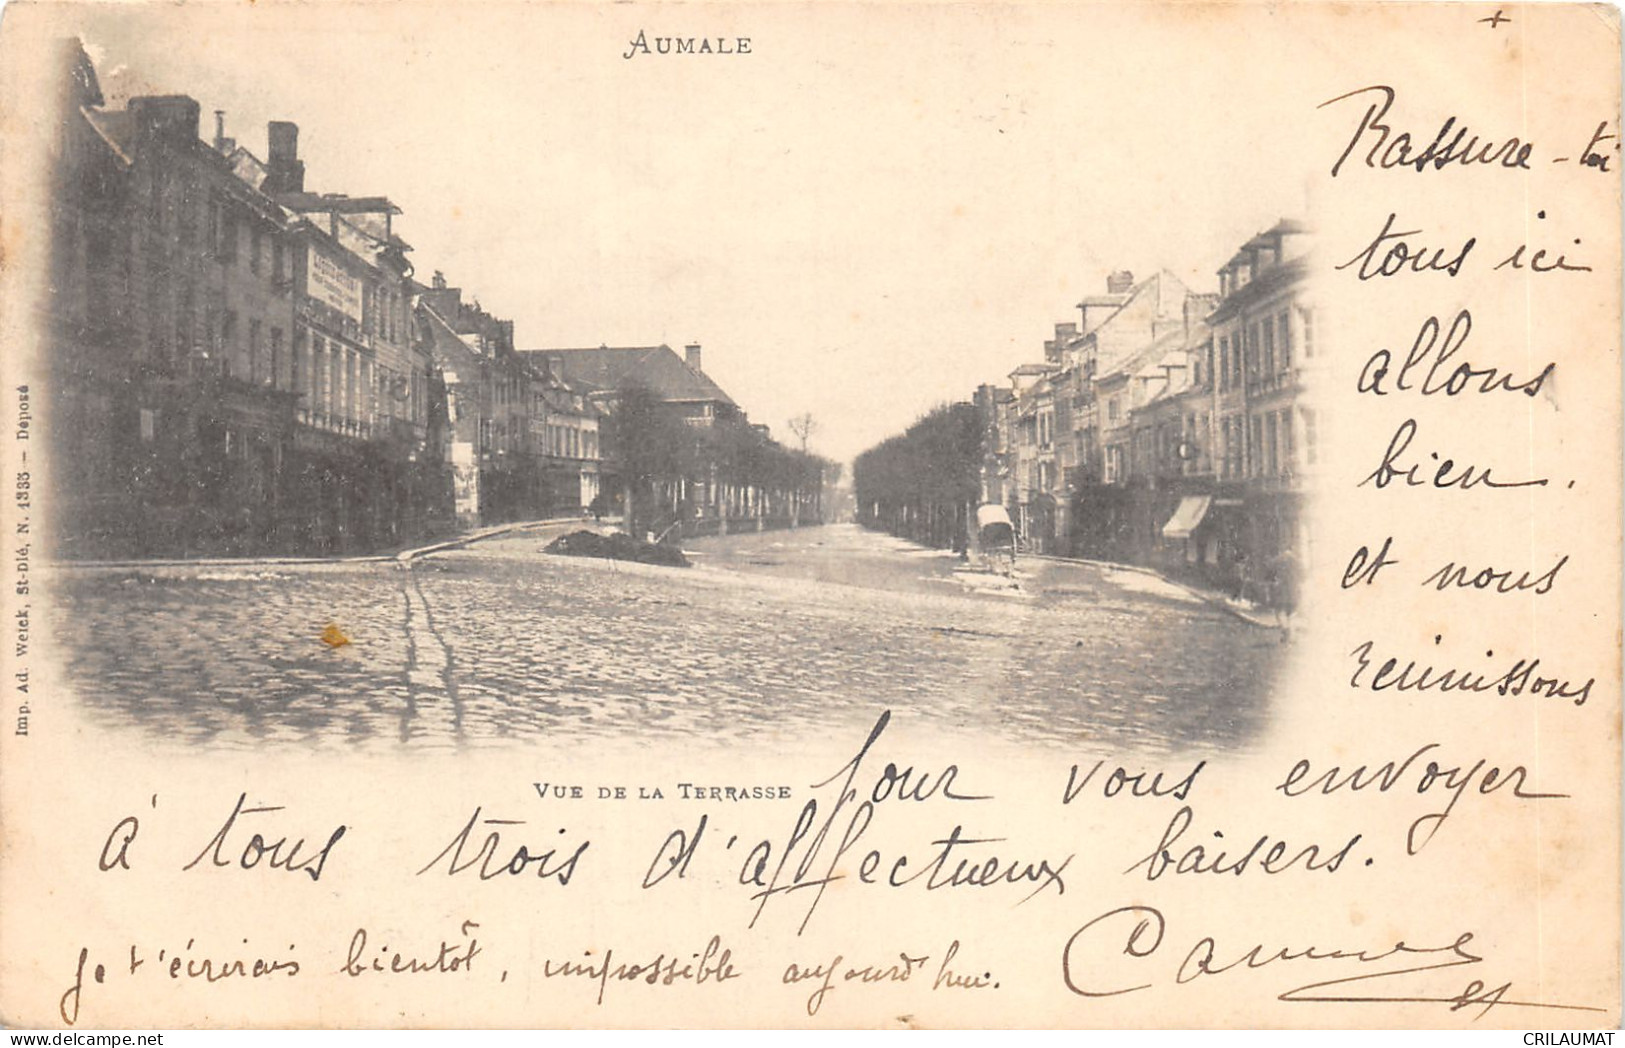 AUMALE
+
Rassure-toi
tous ici
allons
bien.
et nous
réunissons
pour vous envoyer
VUE DE LA TERRASSE
à tous trois d'affectueux baisers.
Je t'écrirais bientôt, impossible aujourd'hui.
Imp. Ad. Weick, St-Dié, N. 1335 — Déposé
CRILAUMAT